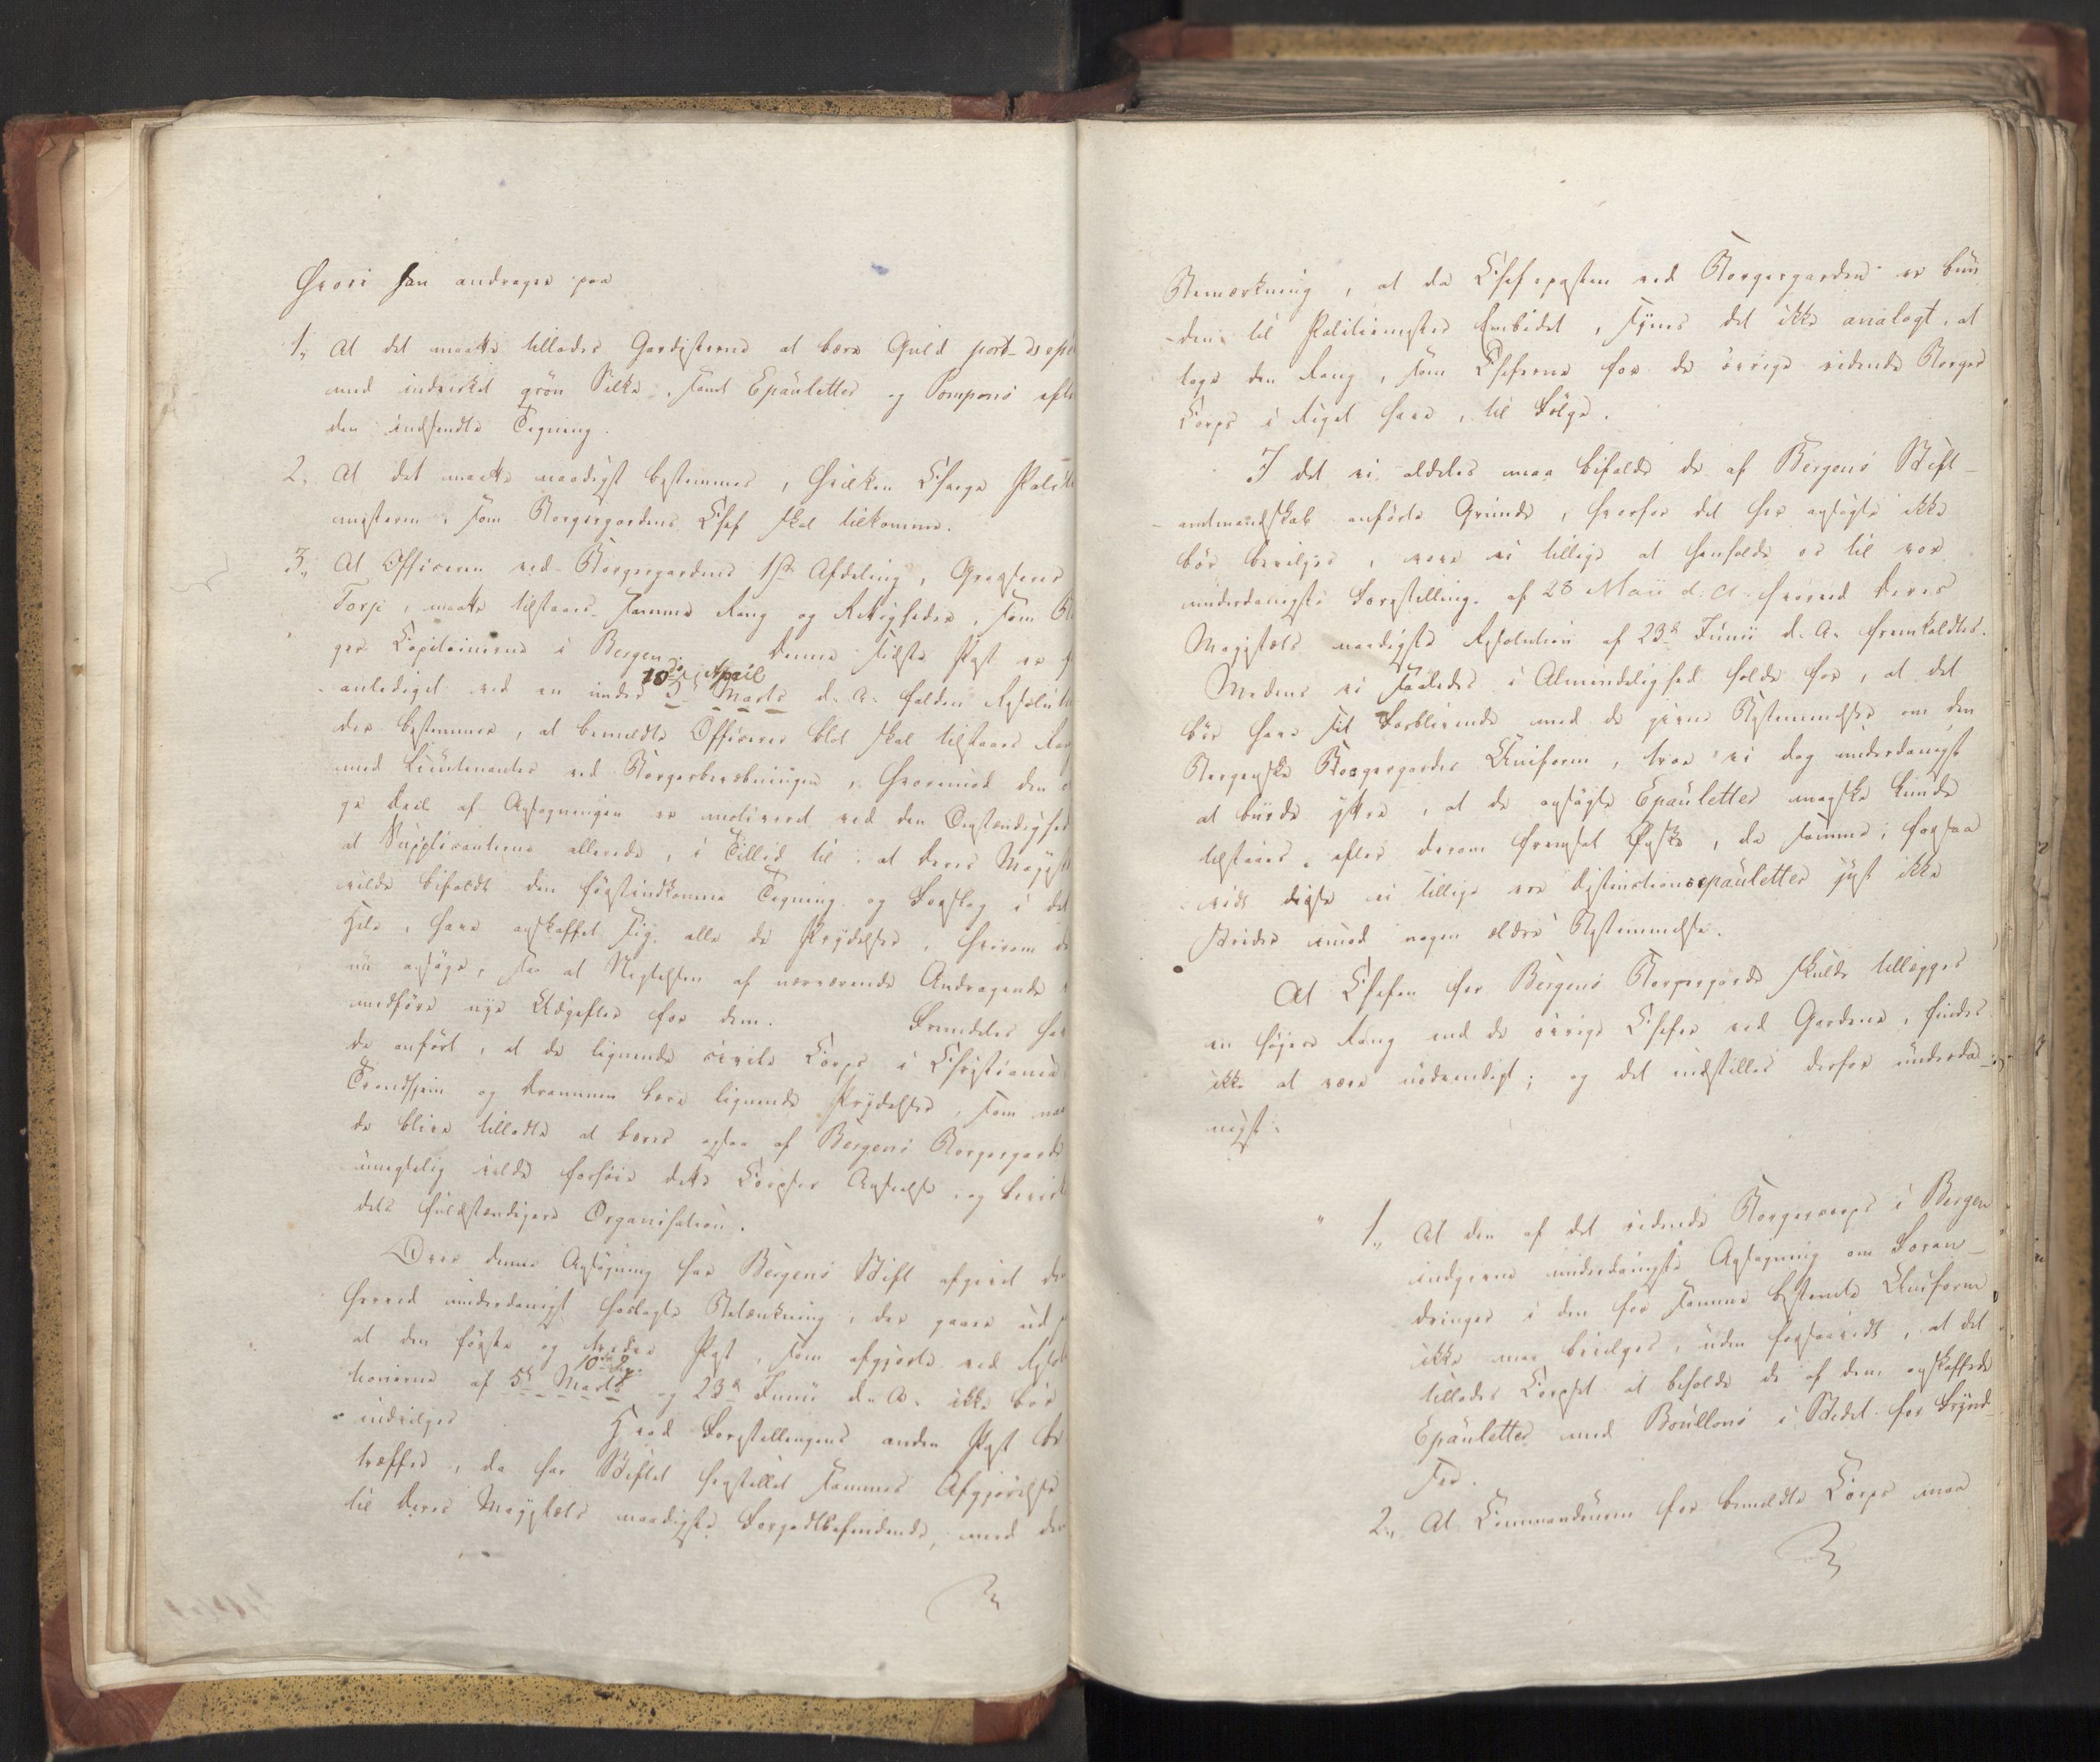 Hvori han andrager paa
1., At det maatte tillades Gardisterne at bære Guld port-dsepé
med indvirket grön Silke, samt Epauletter og Pompons efter
den indsendte Tegning.
2., At det maatte naadigst bestemmes, hvilken Charge Politie
mesteren, som Borgergardens Chef skal tilkomme.
3., At Officeren ved Borgergardens 1ste Afdeling,
Torp, maatte tilstaaes samme Rang og Rettigheder, som
ger Capitainerne i Bergen. Denne sidste Post er
10de April
anlediget ved en under 5te Marts d. A. falden Resolution
der bestemmer, at bemeldte Officerer blot skal tilstaaes Rang
med Lieutenanter ved Borgerbevæbningen, hvorimod den
ge Deel af Ansøgningen er motiveret ved den Omstændighed
at Supplicanterne allerede, i Tillid til at Deres Majestæt
vilde bifaldt den førstindkomne Tegning og Forslag i det
Hele, have anskaffet sig alle de Prydelser, hvorom de
nu ansøge, saa at Negtelsen af nærværende Andragende
medføre nye Udgifter for dem. Fremdeles har
de anført, at de lignende civile Corps i Christiania
Trondhjem og Drammen bære lignende Prydelser, som naar
de bleve tilladte at bæres ogsaa af Bergens Borgergarde
unegtelig vilde forhøie dette Corpses Anseelse, og bevirke
dets fuldstændigere Organisation.
Over denne Ansøgning har Bergens Stift afgivet den
herved underdanigst Betænkning, der gaaer ud
at den første og tredie Post, som afgjorte ved Resolu
10de Apr.
tionerne af 5te Marts og 23de Junii d. A. ikke bør
indvilges Hvad Forestillingens anden Post be
træffer, da har Stiftet henstillet sammes Afgjørelse
til Deres Majestæts naadigste Forgodtbefindende, med den
Bemærkning, at da Chefsposten ved Borgergarden er bun
-den til Politiemester Embedet, synes det ikke analogt, at
lægge den Rang, som Cheferne for de øvrige ridende Borger
Corps i Riget have, til Følge.
I det vi aldeles maa bifalde de af Bergens Stift-
amtmandskab anførte Grunde, hvorfor det her ansøgte ikke
bør bevilges, vove vi tillige at henholde os til vor
underdanigste Forestilling af 28 Maii d: A. hvorved Deres
Majestæts naadigste Resolution af 23de Junii d. A. fremkaldtes.
Medens vi saaledes i Almindelighed holde for, at det
bør have sit Forblivende med de givne Bestemmelser om den
Bergenske Borgergardes Uniform, troe vi dog underdanigst
at burde yttre, at de ansøgte Epauletter maaske kunde
tilstaaes, efter derom fremsat Ønske, da samme, forsaa
vidt disse ei tillige ere Distinctionsepauletter just ikke
strider imod nogen ældre Bestemmelse.
At Chefen for Bergens Borgergarde skulde tillægges
en høiere Rang end de øvrige Chefer ved Gardene, findes
ikke at være nødvendigt; og det indstilles derfor underda-
nigst:
1., At den af det ridende Borgercorps i Bergen
indgivne underdanigste Ansøgning om Foran-
dringer i den for samme bestemte Uniform
ikke maa bevilges, uden forsaavidt, at det
tillades Corpset at beholde de af dem anskaffede
Epauletter med Boullons i Stedet for Frynd-
ser.
2., At Commandeuren for bemeldte Corps maa